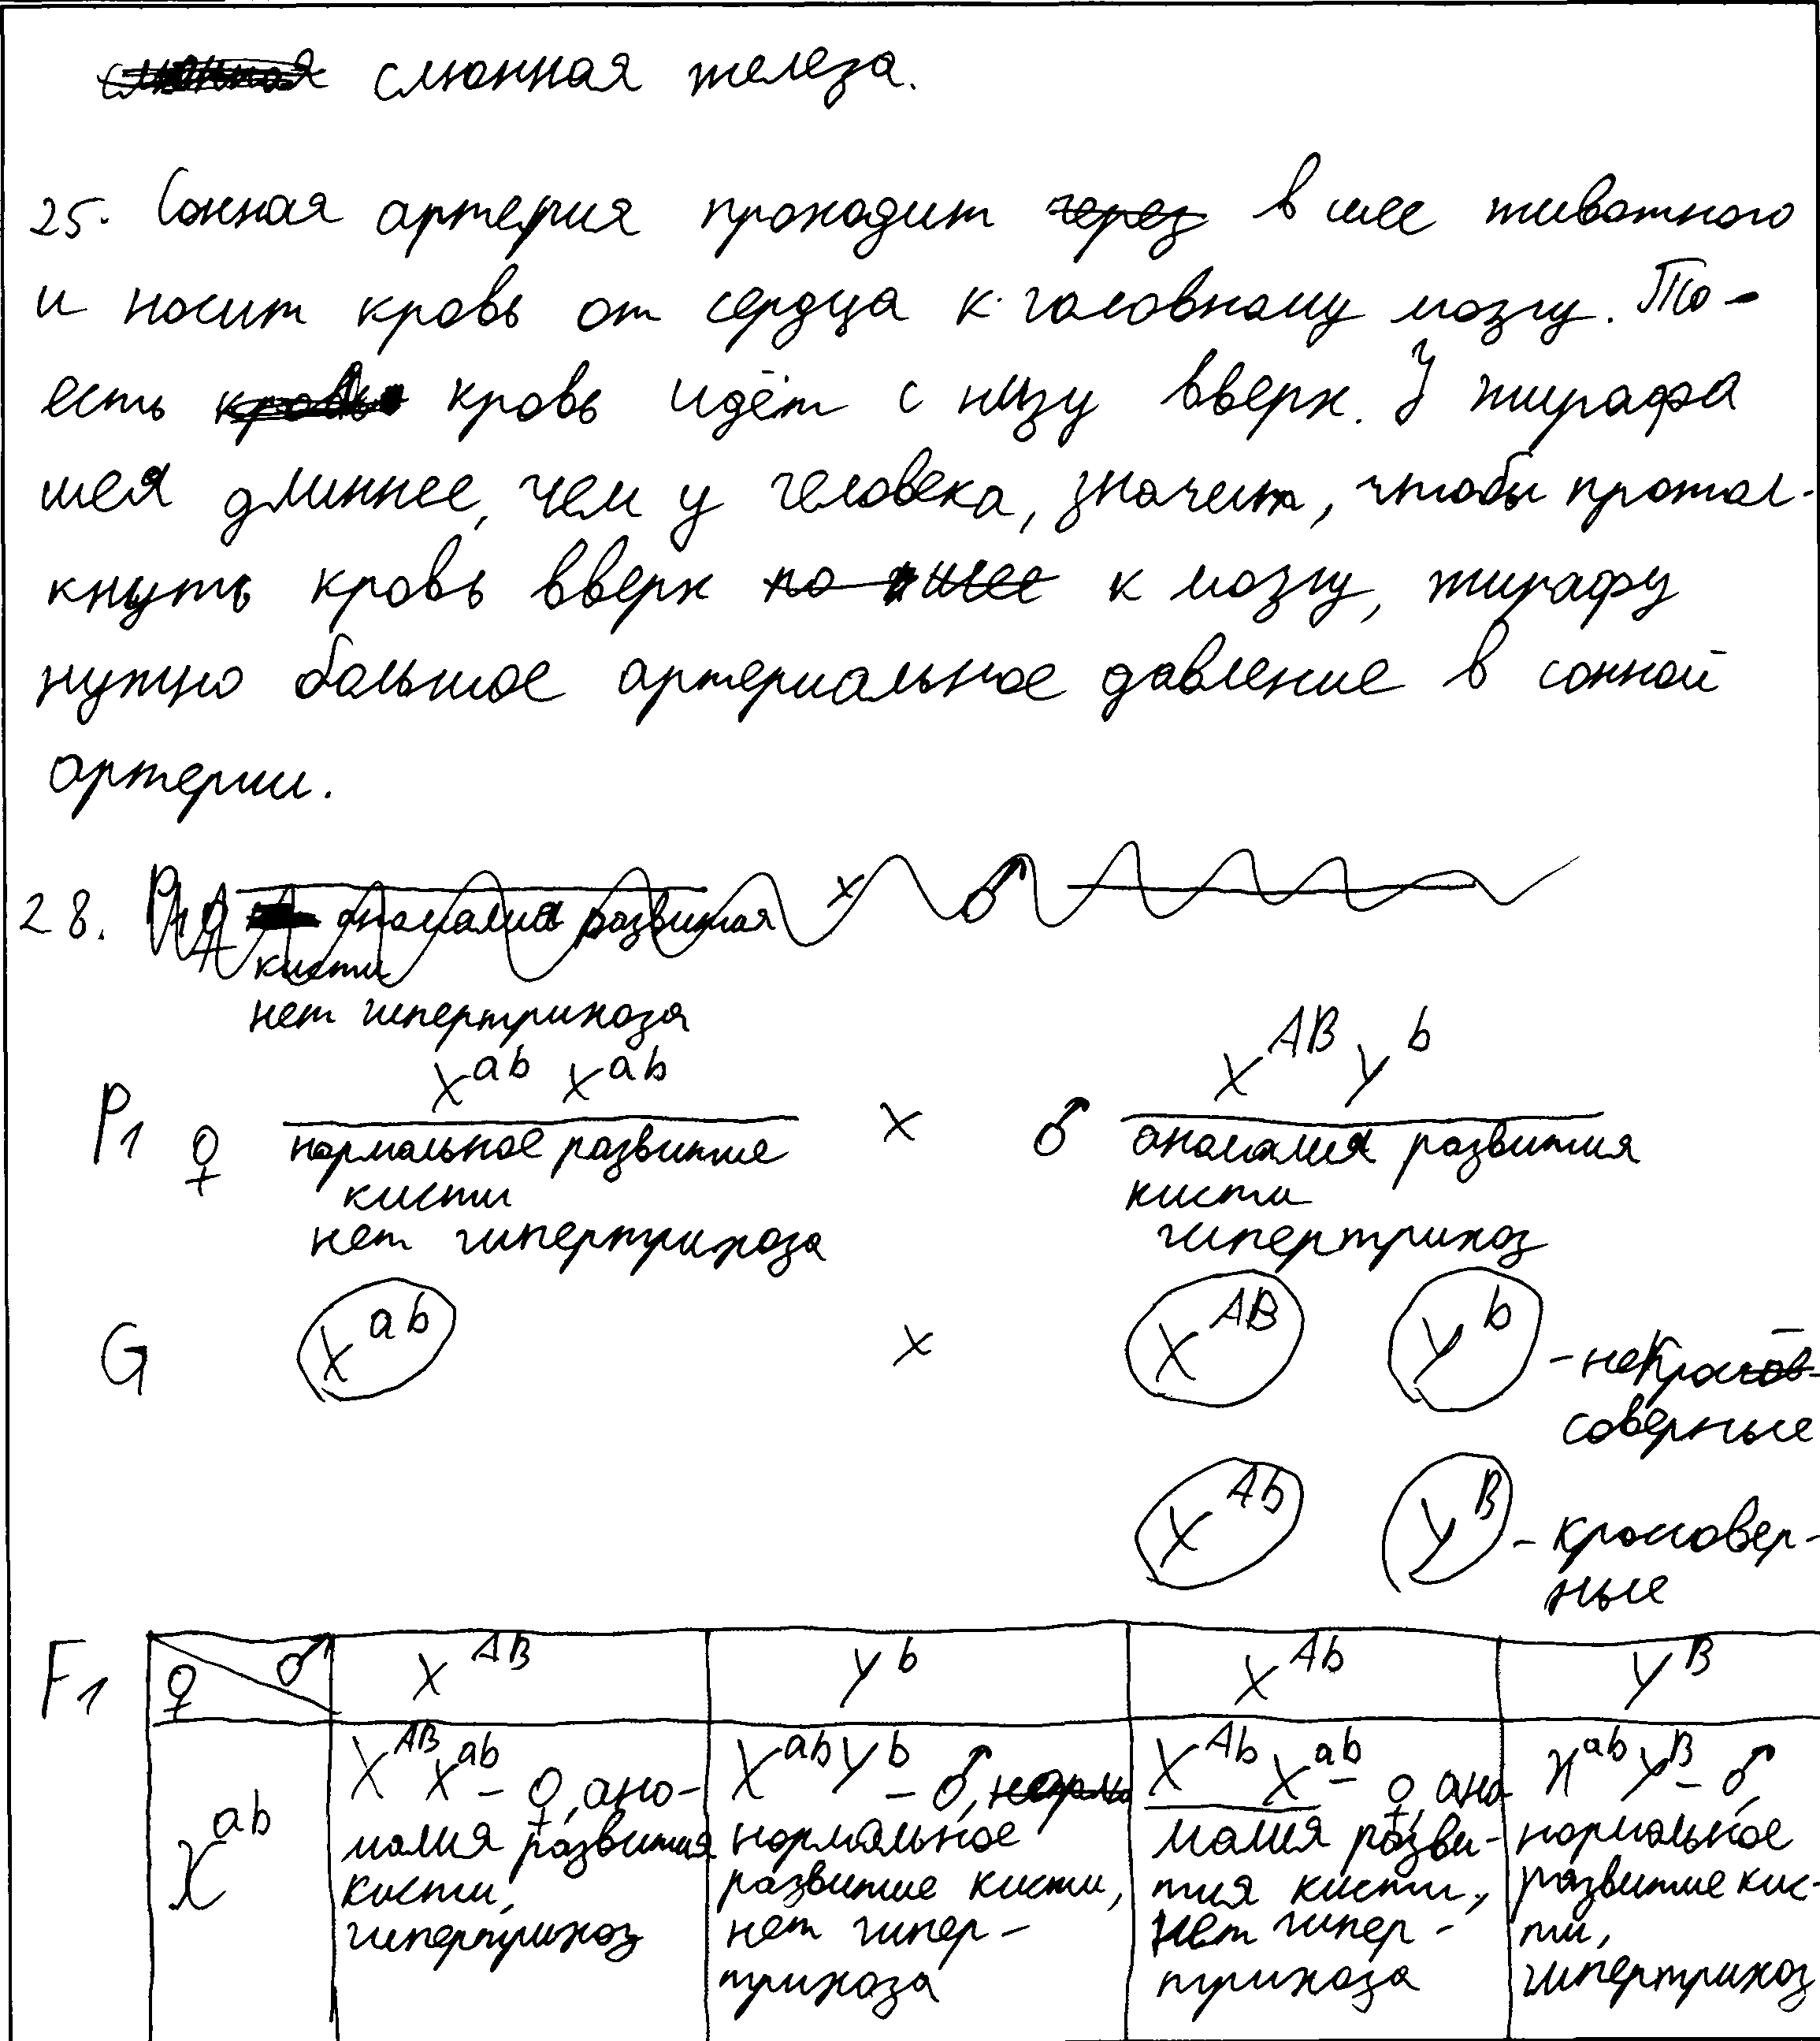 слюнная железа.
25. Сонная артерия проходит через в шее животного
и носит кровь от сердца к головному мозгу. То-
есть кровь кровь идёт с низу вверх. У жирафа
шея длиннее, чем у человека, значит, чтобы протол-
кнуть кровь вверх по шее к мозгу, жирафу
нужно большое артериальное давление в сонной
артерии.
28. P₁ ♀ аномалия развития x ♂
кисти
нет гипертрихоза
X^ab X^ab X^AB Y^b
P₁ ♀ x ♂
нормальное развитие аномалия развития
кисти кисти
нет гипертрихоза гипертрихоз
G X^ab x X^AB Y^b - некрос
соверные
X^Ab Y^B - кроссовер-
ные
F₁ ♀ ♂ X^AB Y^b X^Ab Y^B
X^ab
X^AB X^ab - ♀, ано-
малия развития
кисти,
гипертрихоз
X^ab Y^b - ♂, норма
нормальное
развитие кисти,
нет гипер-
трихоза
X^Ab X^ab - ♀, ано
малия разви-
тия кисти,
нет гипер-
трихоза
X^ab Y^B - ♂,
нормальное
развитие кис-
ти,
гипертрихоз